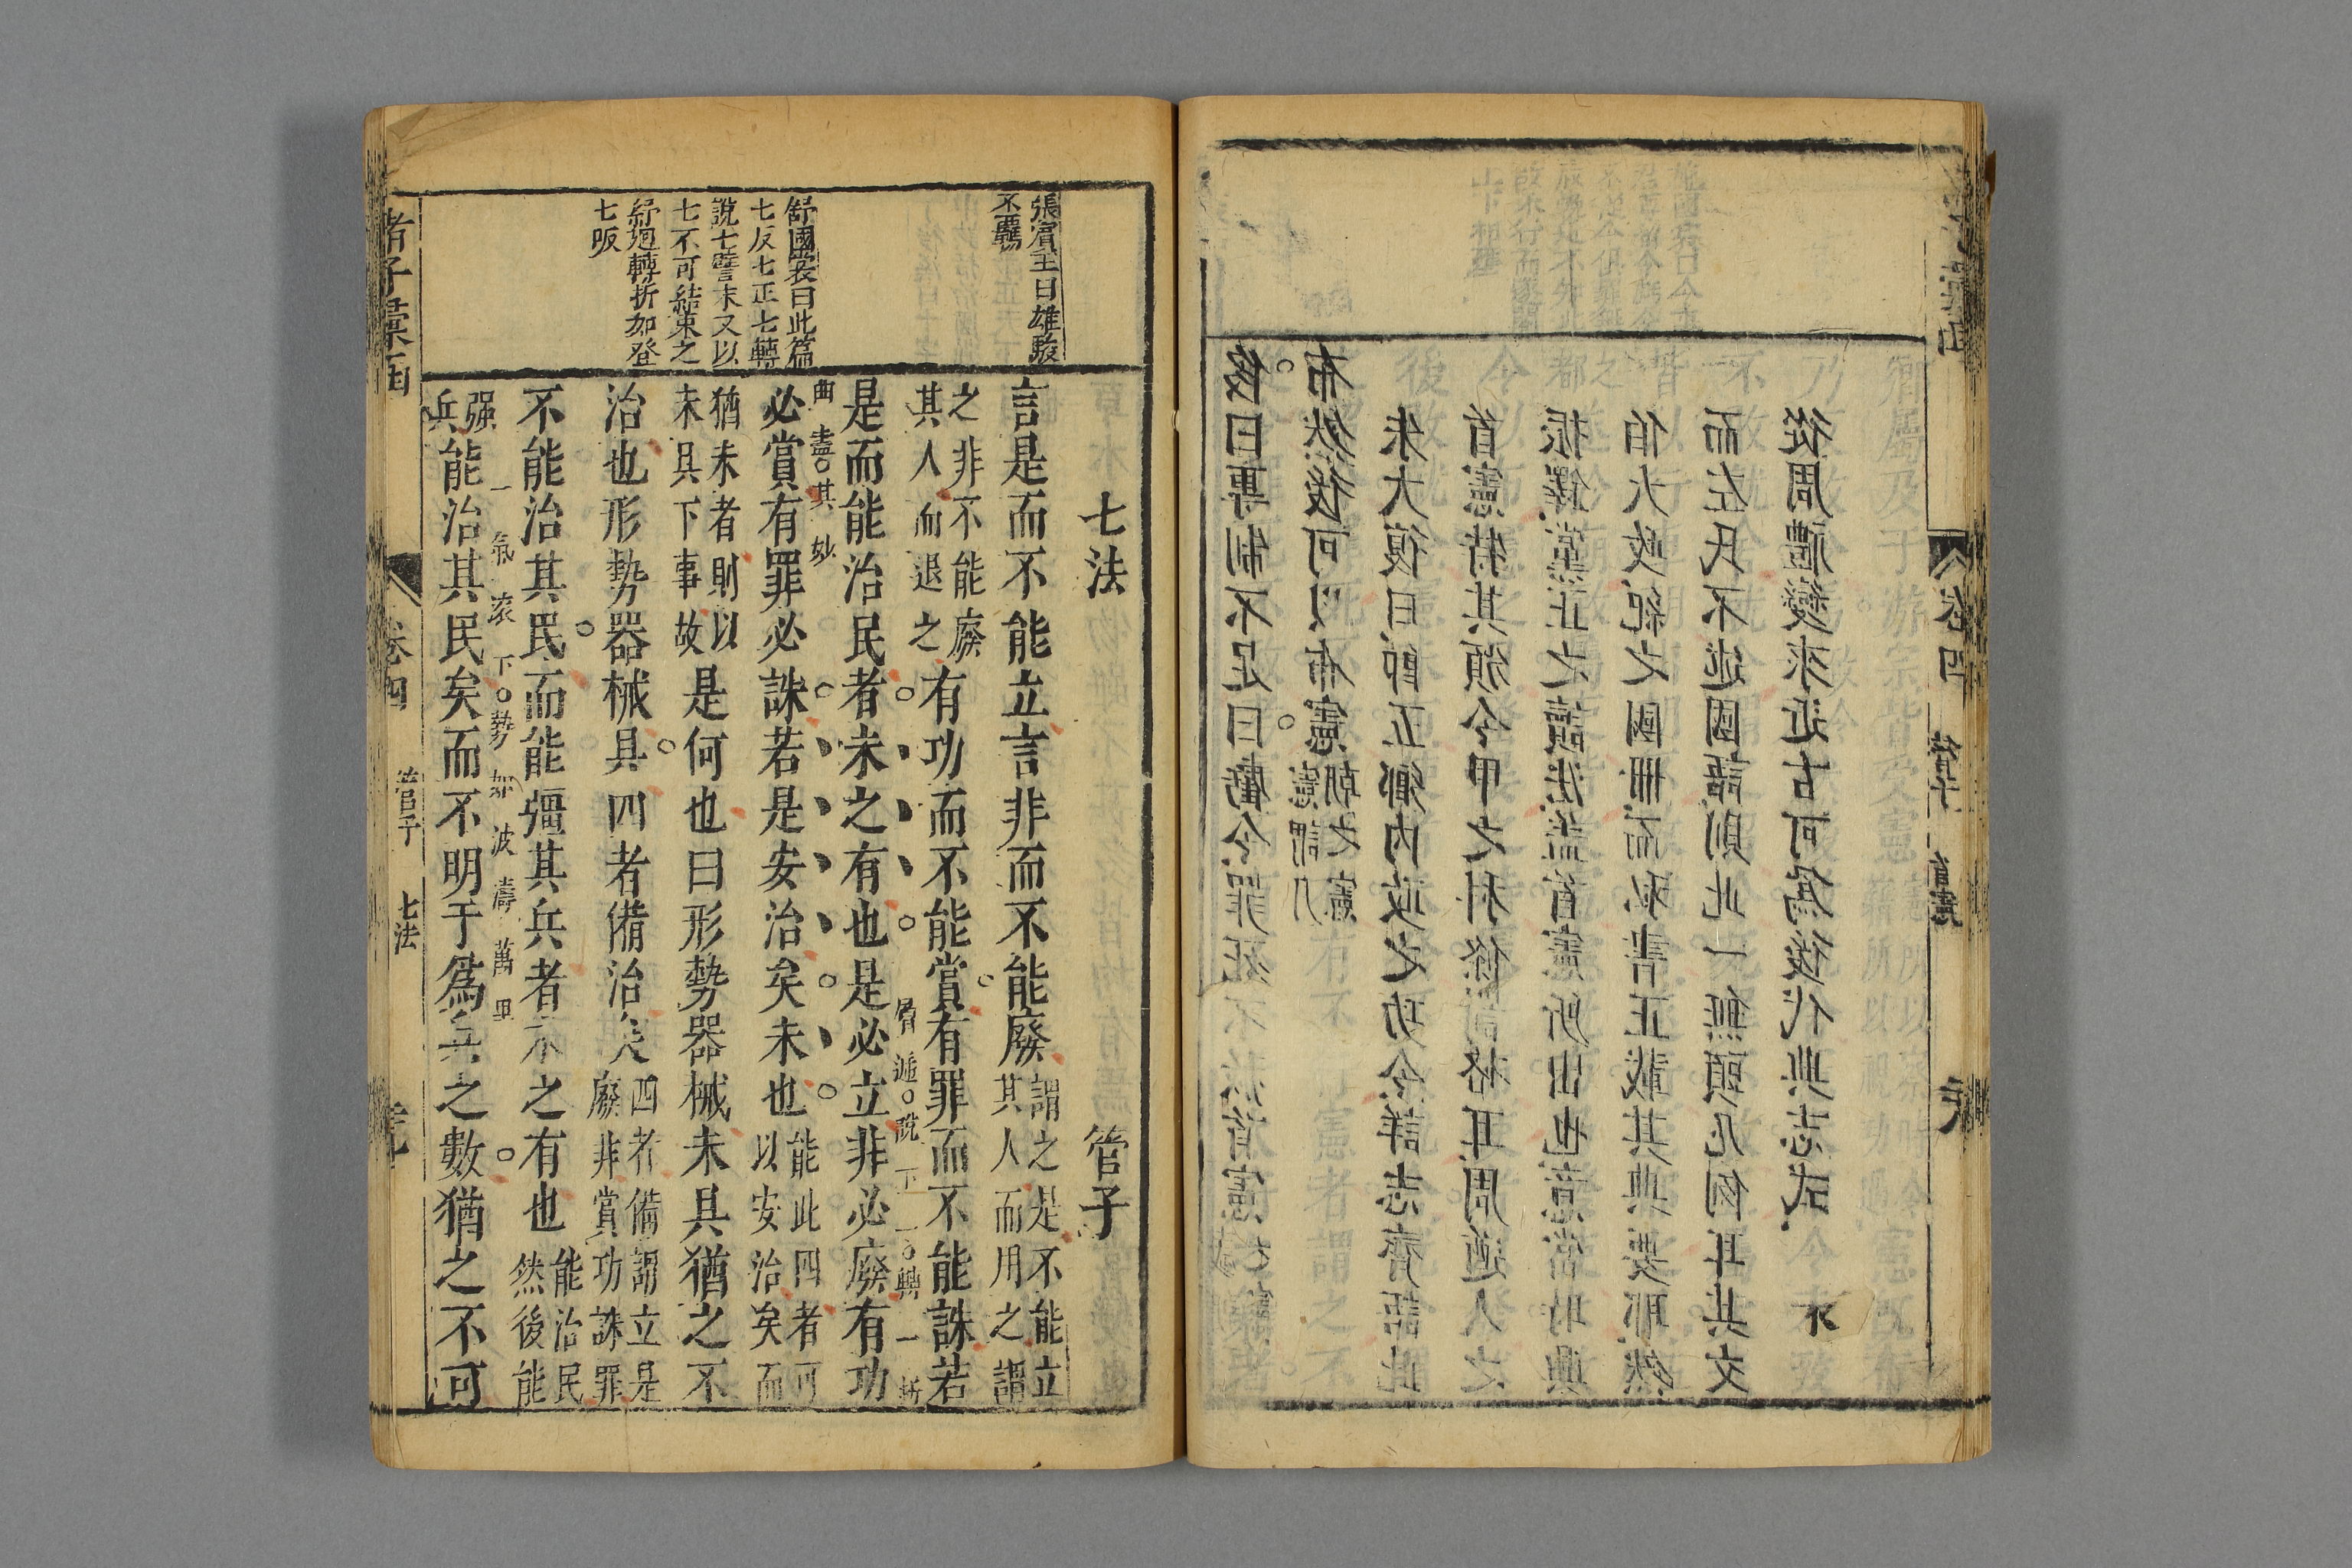 後曰專制不足曰虧令罪死不
布然後可以布憲朝之憲憲謂凡
朱大復曰卽五鄉內政之功令詳志齊語此
首憲特其頒令甲之科條 格耳周遒人之
振鐸黨正之讀法盖首憲所出也意當時典
伯大政紀之國冊而 書正載其典要耶然
而左氏不述國語則此一無頭凡例耳其文
從周禮變來近古可爲後代典志式
卷四 管子 首憲
七法 管子
張賓王曰雄駿
不羈
言是而不能立言非而不能廢謂之是不能立其人而用之謂
之非不能廢其人而退之有功而不能賞有罪而不能誅若
層遞說下
是而能治民者未之有也是必立非必廢有功
曲盡其妙
舒國裳曰此篇
七反七正七轉
說七譬末又以
七不可結束之
紆廻轉折如登
七坂
必賞有罪必誅若是安治矣未也能此四者可以安治矣而
猶未者則以未具下事故是何也曰形勢器械未具猶之不
治也形勢器械具四者備治矣四者備謂立是廢非賞功誅罪
不能治其民而能彊其兵者未之有也能治民然後能
一氣滚下勢如波濤萬里
强兵能治其民矣而不明于爲兵之數猶之不可
者子彙函 卷四 管子 七法